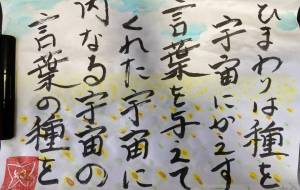 ひまわりは種を
宇宙にかえす
言葉を与えて
くれた宇宙に
内なる宇宙の
言葉の種を